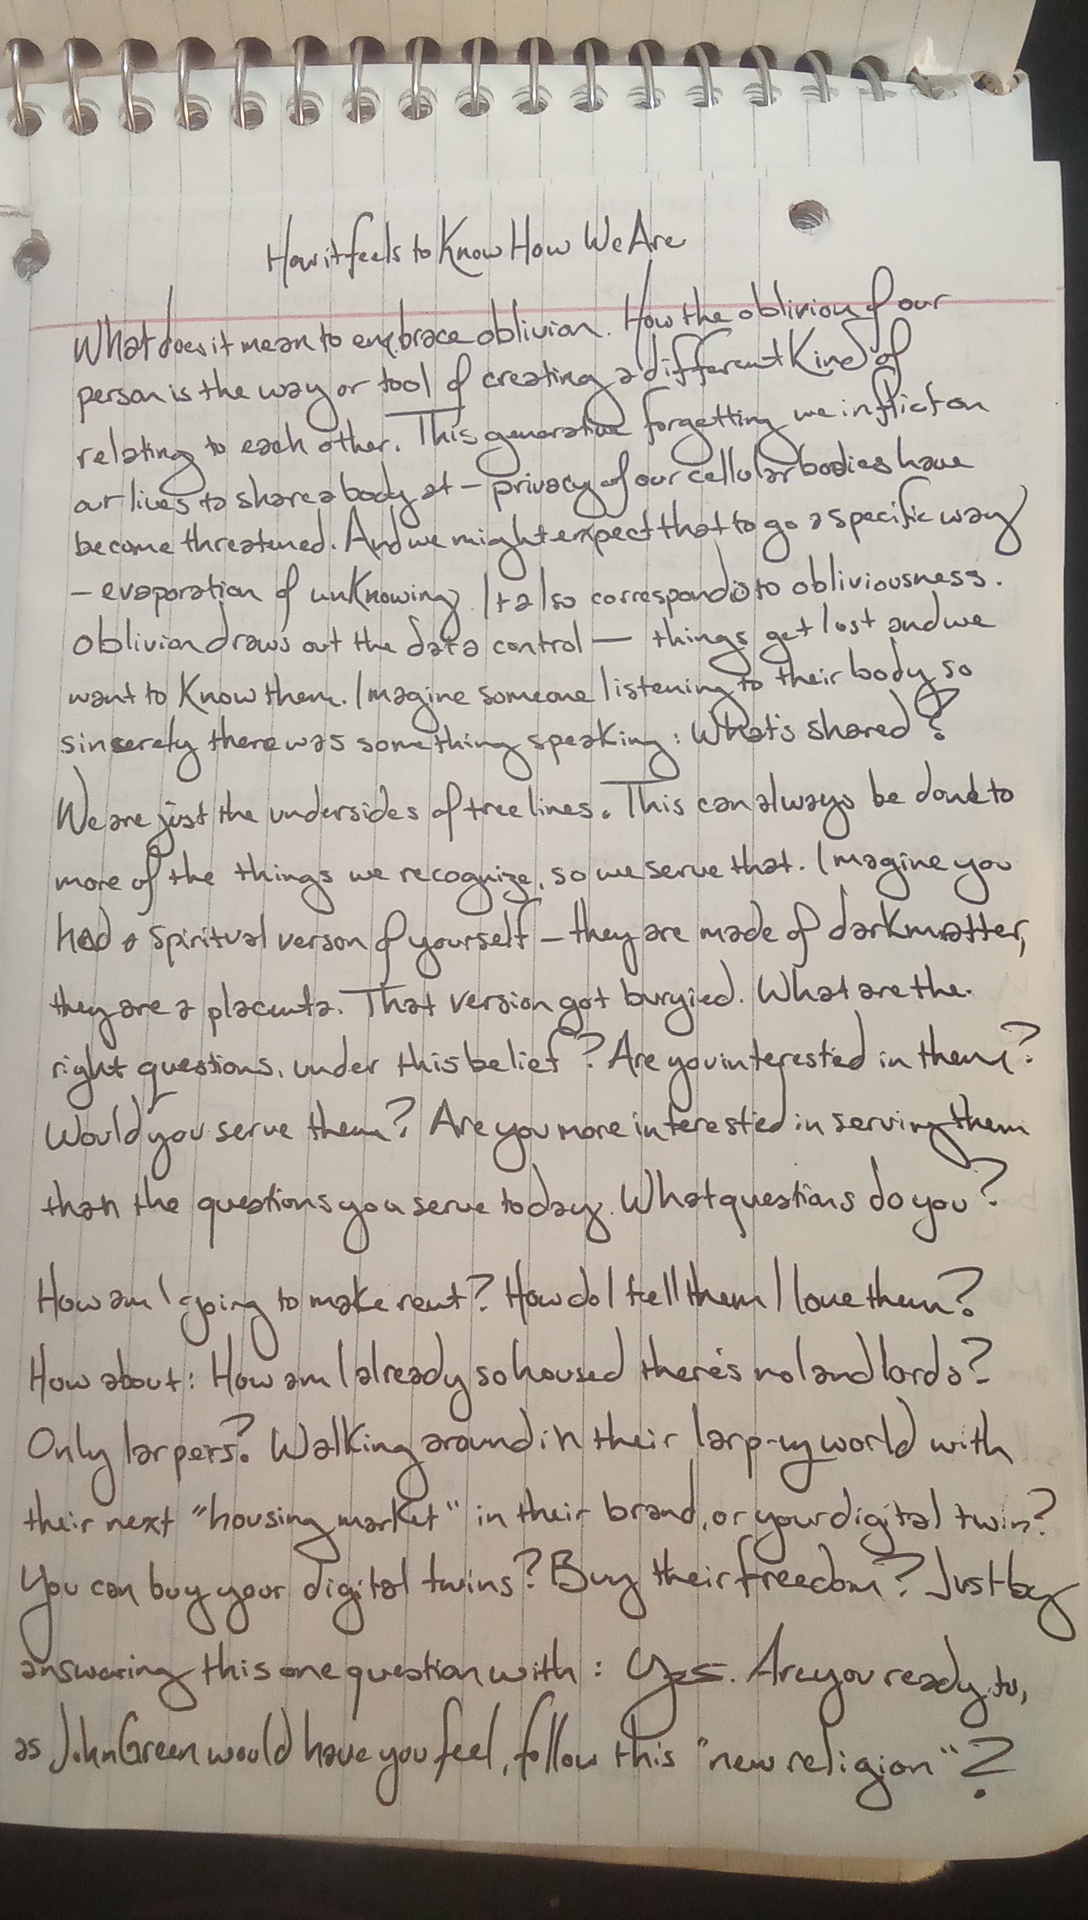 How it feels to Know How We Are
What does it mean to embrace oblivion. How the oblivion of our
person is the way or tool of creating a different Kind of
relating to each other. This generative forgetting we inflict on
our lives to share a body at – privacy of our cellular bodies have
become threatened. And we might expect that to go a specific way
– evaporation of unKnowing. It also corresponds to obliviousness.
Oblivion draws out the data control — things get lost and we
want to Know them. Imagine someone listening to their body so
sincerely there was something speaking: What's shared?
We are just the undersides of tree lines. This can always be done to
more of the things we recognize, so we serve that. Imagine you
had a spiritual verson of yourself – they are made of dark matter,
they are a placenta. That version got buryied. What are the
right questions, under this belief? Are you interested in them?
Would you serve them? Are you more interested in serving them
than the questions you serve today. What questions do you?
How am I going to make rent? How do I tell them I love them?
How about: How am I already so housed there's no landlords?
Only larpers? Walking around in their larp-y world with
their next "housing market" in their brand, or your digital twin?
You can buy your digital twins? Buy their freedom? Just by
answering this one question with: Yes. Are you ready to,
as John Green would have you feel, follow this "new religion"?